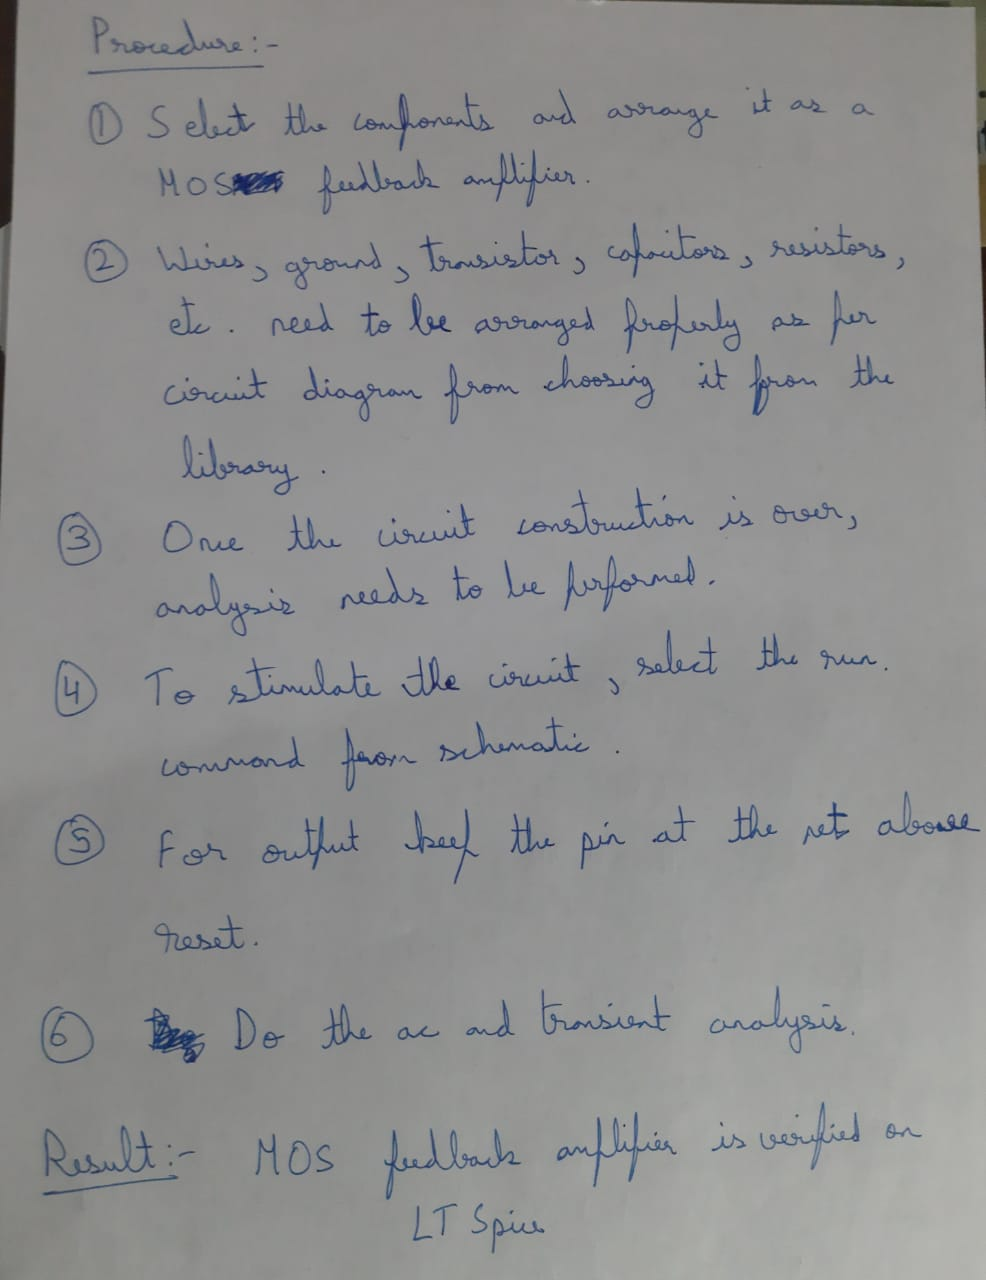 Procedure:-
① Select the components and arrange it as a
MOS feedback amplifier.
② Wires, ground, transistor, capacitors, resistors,
etc. need to be arranged properly as per
circuit diagram from choosing it from the
library.
③ Once the circuit construction is over,
analysis needs to be performed.
④ To stimulate the circuit, select the run.
command from schematic.
⑤ For output keep the pin at the net above
reset.
⑥ Do the ac and transient analysis.
Result:- MOS feedback amplifier is verified on
LT Spice